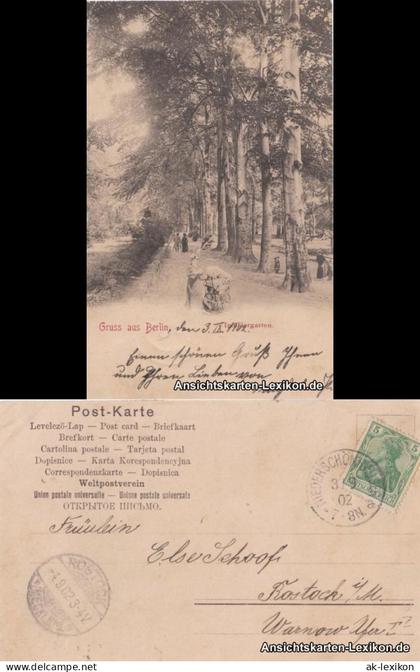 Gruss aus Berlin, den 3. IX. 1902.
Tiergarten.
Einen schönen Gruß Ihnen
und Ihren Lieben von
Ansichtskarten-Lexikon.de
Post-Karte
Levelező-Lap — Post card — Briefkaart
Brefkort — Carte postale
Cartolina postale — Tarjeta postal
Dopisnice — Karta Korespondencyjna
Correspondenzkarte — Dopisnica
Weltpostverein
Union postale universelle — Unione postale universale
ОТКРЫТОЕ ПИСЬМО.
5
3 9
02
7-8N.
Fräulein
Else Schoof.
ROSTOCK
.9.02.3-4V
Rostock i/M.
Warnow Ufer
Ansichtskarten-Lexikon.de
ak-lexikon